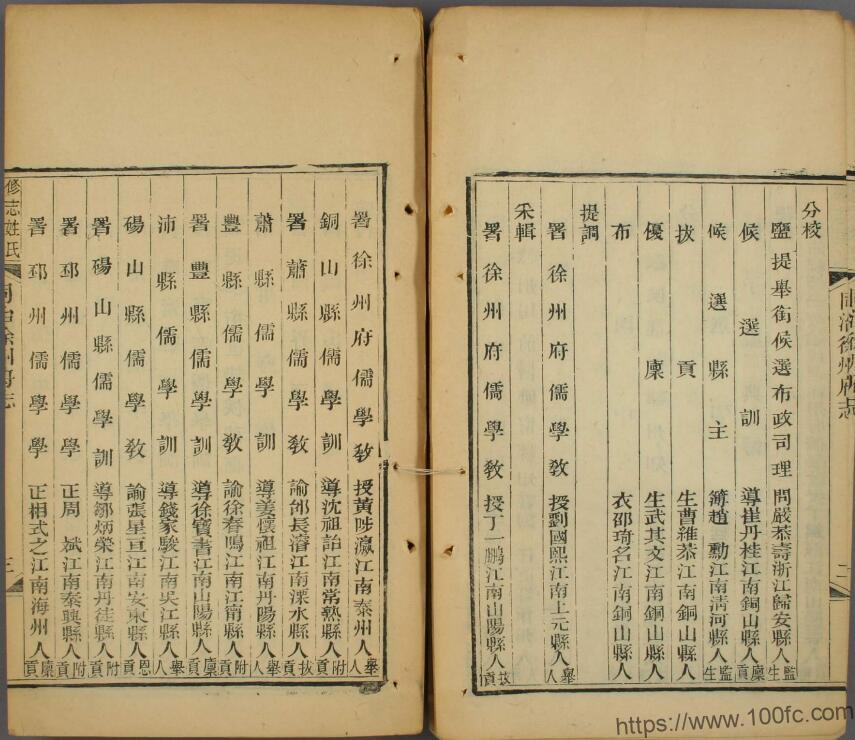 同治徐州府志
二
分校
鹽提舉銜候選布政司理問嚴恭壽浙江歸安縣人監生
候選訓導崔丹桂江南銅山縣人廩貢
候選縣主簿趙勳江南清河縣人監生
拔貢生曹維恭江南銅山縣人
優廩生武其文江南銅山縣人
布衣邵琦名江南銅山縣人
提調
署徐州府儒學教授劉國熙江南上元縣人舉人
采輯
署徐州府儒學教授丁一鵬江南山陽縣人拔貢
署徐州府儒學教授黃陟瀛江南泰州人舉人
銅山縣儒學訓導沈祖詒江南常熟縣人附貢
署蕭縣儒學教諭邰長濬江南溧水縣人拔貢
蕭縣儒學訓導姜懷祖江南丹陽縣人舉人
豐縣儒學教諭徐春鳴江南江甯縣人附貢
署豐縣儒學訓導徐寶書江南山陽縣人廩貢
沛縣儒學訓導錢家駿江南吳江縣人舉人
碭山縣儒學教諭張星亘江南安東縣人恩貢
署碭山縣儒學訓導鄒炳榮江南丹徒縣人附貢
署邳州儒學學正周斌江南泰興縣人附貢
署邳州儒學學正相式之江南海州人廩貢
修志姓氏
同治徐州府志
三
https://www.100fc.com